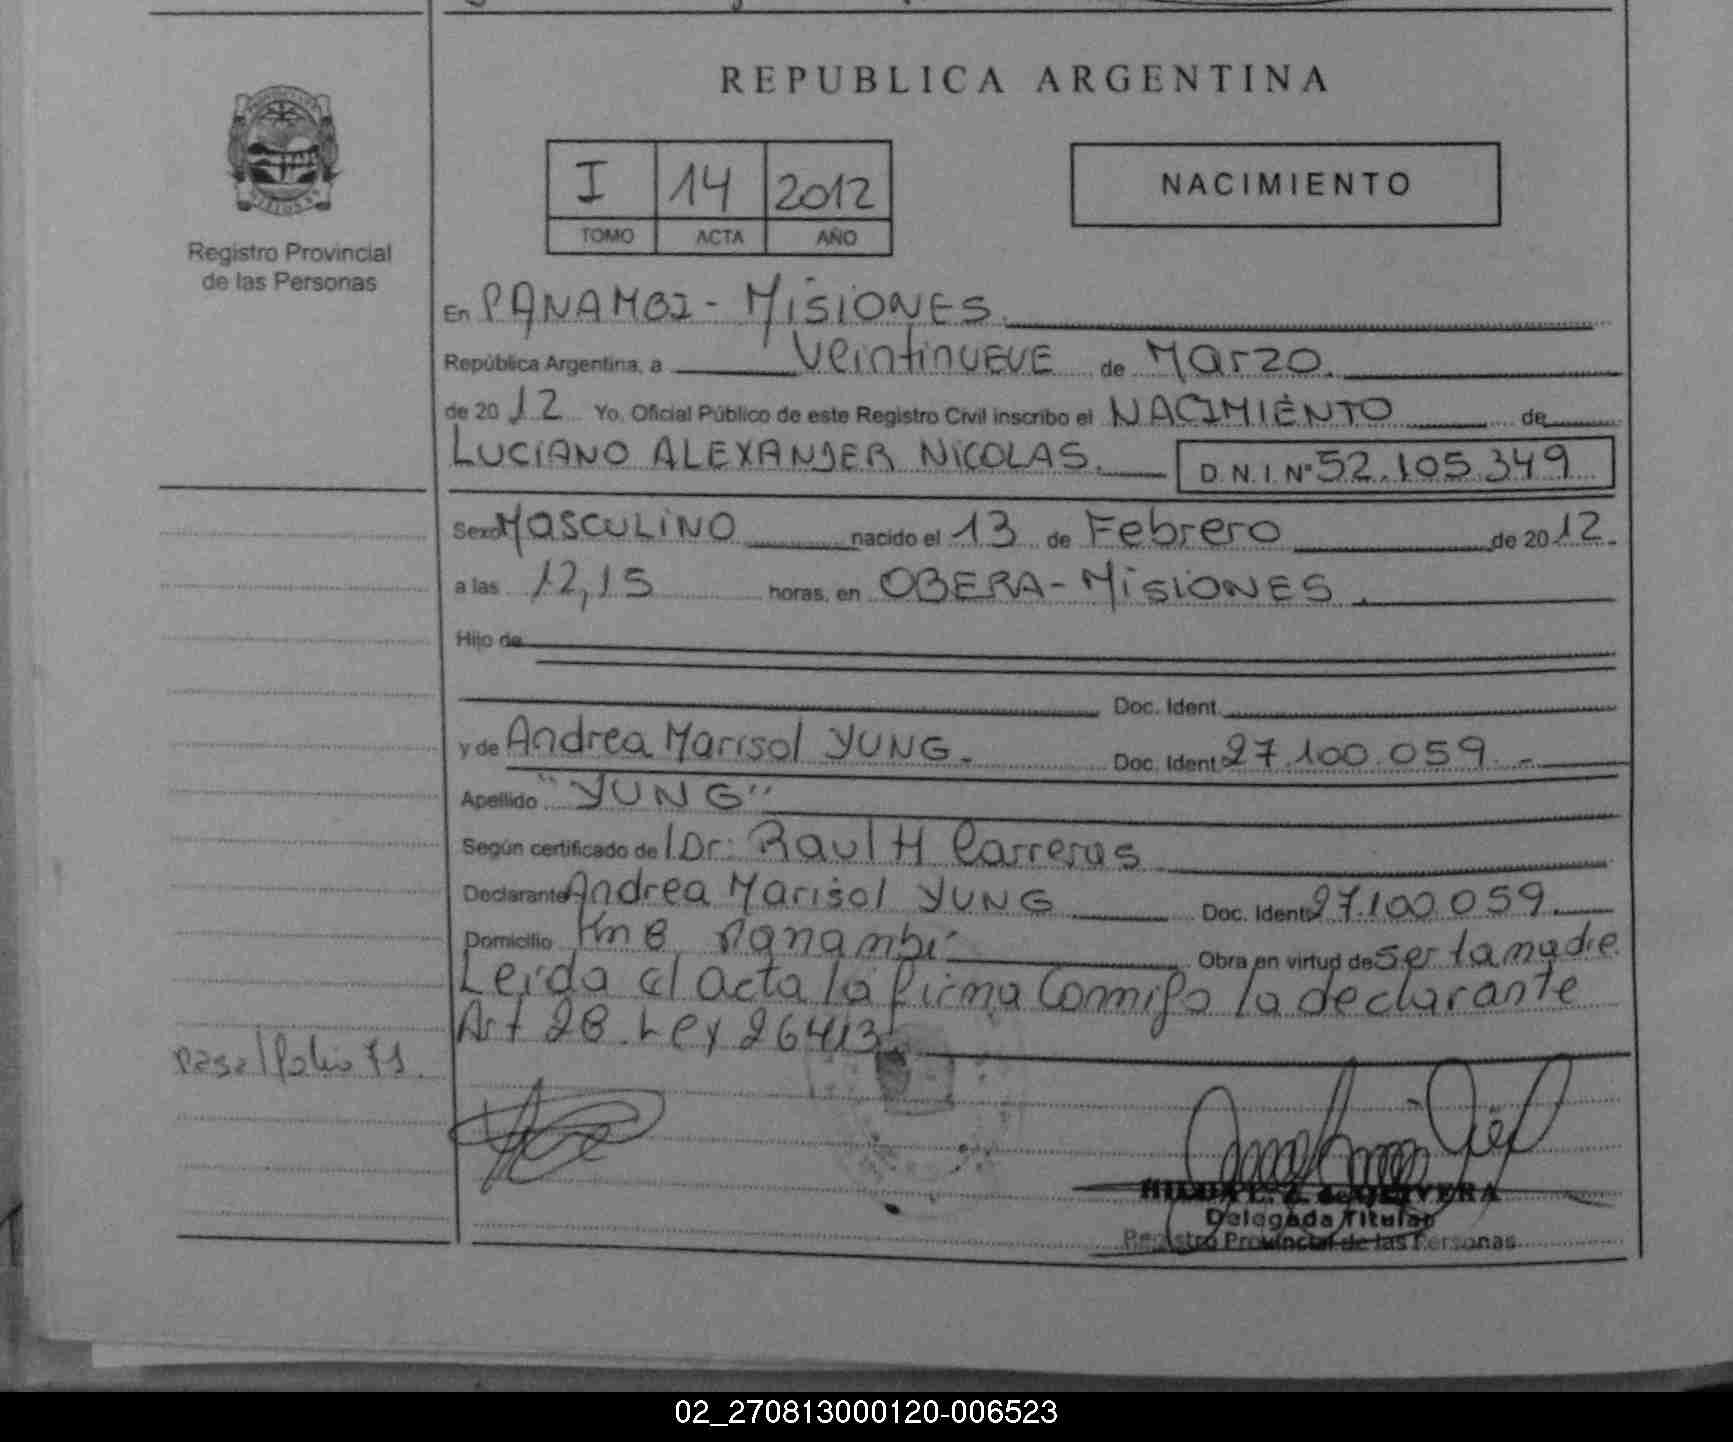 REPUBLICA ARGENTINA
I 14 2012
TOMO ACTA AÑO
NACIMIENTO
Registro Provincial
de las Personas
En PANAMBI - MISIONES.
República Argentina, a Veintinueve de Marzo.
de 2012 Yo, Oficial Público de este Registro Civil inscribo el NACIMIENTO de
LUCIANO ALEXANDER NICOLAS. D.N.I. Nº 52.105.349
Sexo MASCULINO nacido el 13 de Febrero de 2012.
a las 12,15 horas, en OBERA - MISIONES.
Hijo de
Doc. Ident.
y de Andrea Marisol YUNG.- Doc. Ident. 27.100.059.-
Apellido "YUNG"
Según certificado de l Dr: Raul H Carreras
Declarante Andrea Marisol YUNG Doc. Ident. 27.100.059.
Domicilio Km 8 Panambi Obra en virtud de ser la madre.
Leida el acta la firma Conmigo la declarante
Art 28. Ley 26413
Pasa / folio 71.
de OLIVERA
Delegada Titular
Registro Provincial de las Personas
02_270813000120-006523